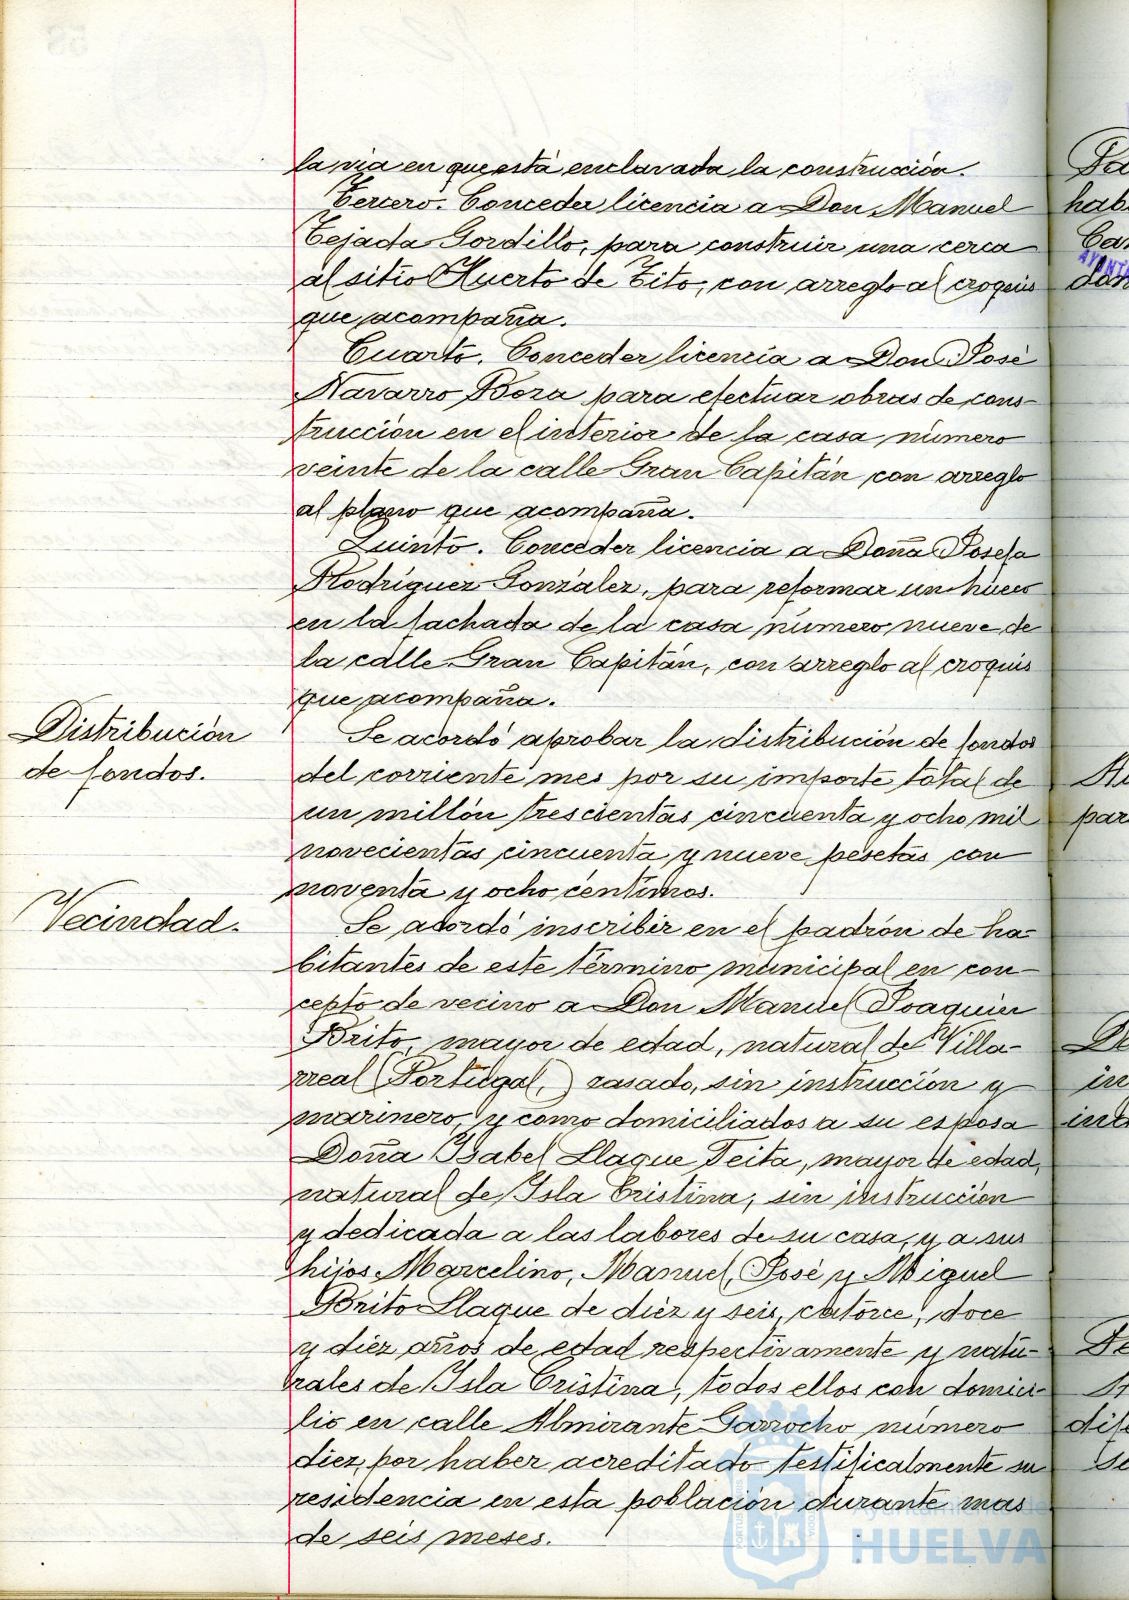 la via en que está enclavada la construcción.
Tercero. Conceder licencia a Don Manuel
Tejada Gordillo, para construir una cerca
al sitio Huerto de Tito, con arreglo al croquis
que acompaña.
Cuarto. Conceder licencia a Don José
Navarro Bora para efectuar obras de cons-
trucción en el interior de la casa número
veinte de la calle Gran Capitán con arreglo
al plano que acompaña.
Quinto. Conceder licencia a Doña Josefa
Rodríguez González, para reformar un hueco
en la fachada de la casa número nueve de
la calle Gran Capitán, con arreglo al croquis
que acompaña.
Distribución
de fondos.
Se acordó aprobar la distribución de fondos
del corriente mes por su importe total de
un millón trescientas cincuenta y ocho mil
novecientas cincuenta y nueve pesetas con
noventa y ocho céntimos.
Vecindad.
Se acordó inscribir en el padrón de ha-
bitantes de este término municipal en con-
cepto de vecino a Don Manuel Joaquin
Brito, mayor de edad, natural de Villa-
rreal (Portugal,) casado, sin instrucción y
marinero, y como domiciliados a su esposa
Doña Isabel Llaque Feita, mayor de edad,
natural de Isla Cristina, sin instrucción
y dedicada a las labores de su casa, y a sus
hijos Marcelino, Manuel, José y Miguel
Brito Llaque de diéz y seis, catorce, doce
y diéz años de edad respectivamente y natu-
rales de Isla Cristina, todos ellos con domici-
lio en calle Almirante Garrocho número
diez, por haber acreditado testificalmente su
residencia en esta población durante mas
de seis meses.
Ayuntamiento de
HUELVA